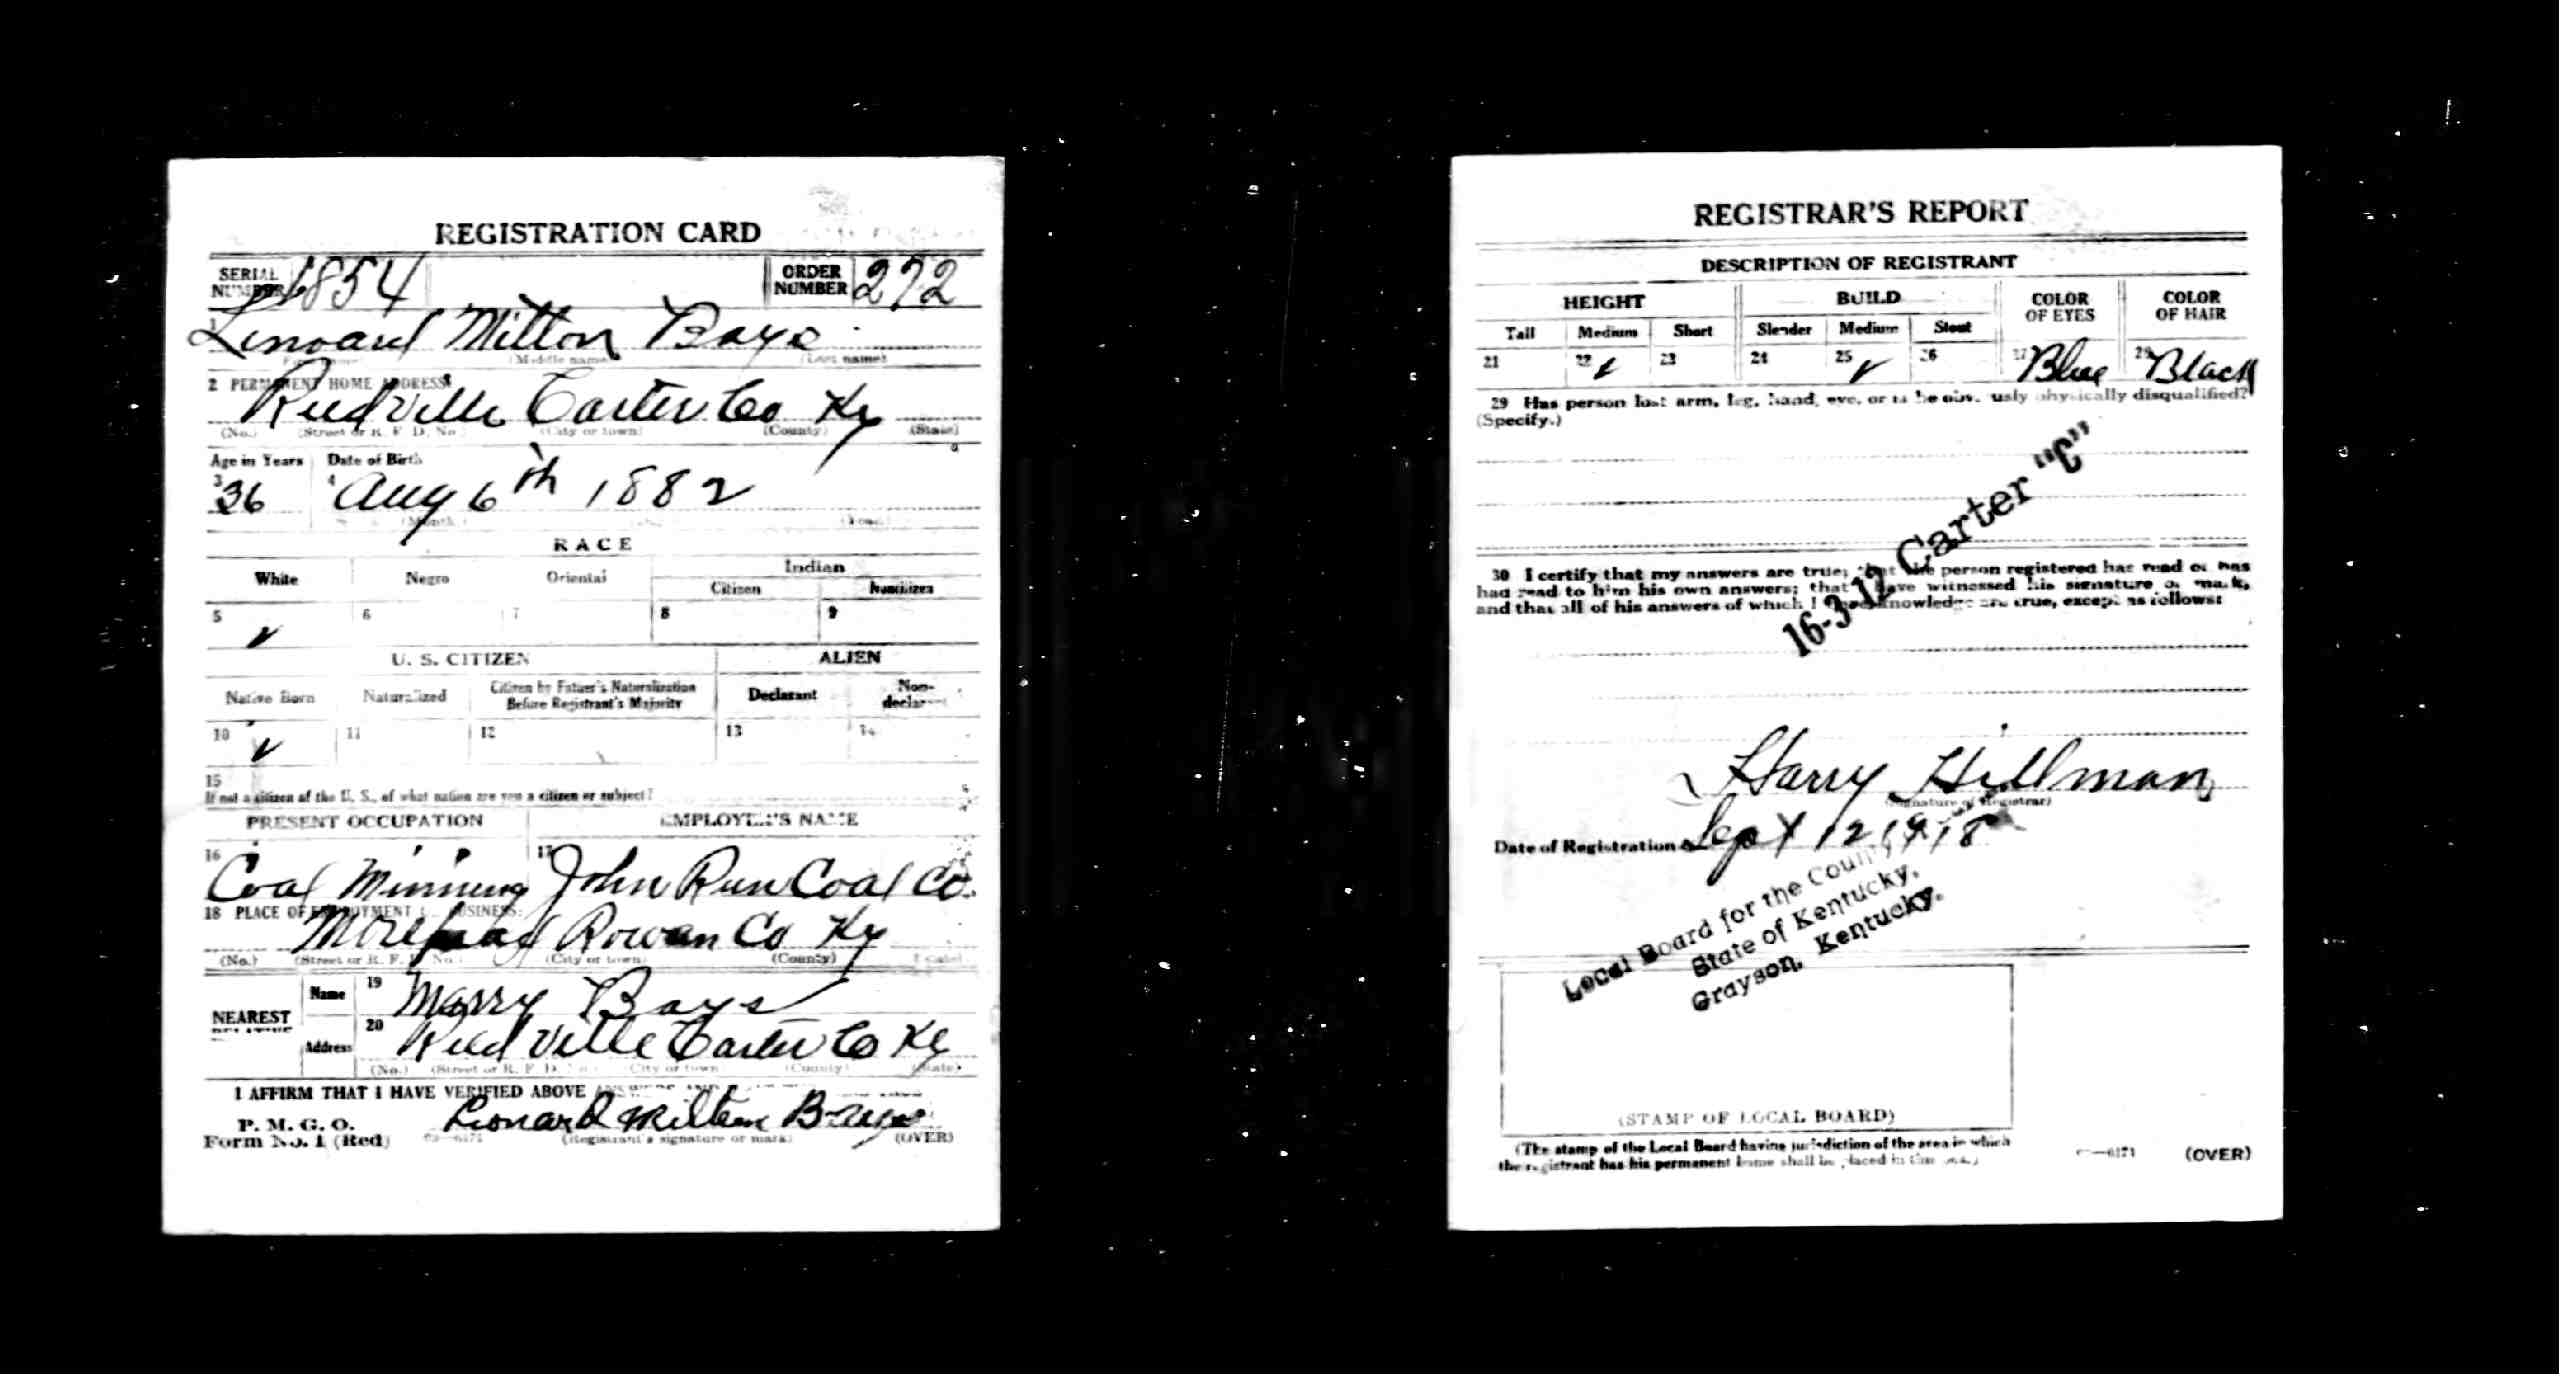 REGISTRATION CARD
SERIAL NUMBER 1854 ORDER NUMBER 272
1 Lenoard Milton Bays
(Middle name) (Last name)
2 PERMANENT HOME ADDRESS
Reedville Carter Co Ky
(No.) (Street or R. F. D. No.) (City or town) (County) (State)
Age in Years Date of Birth
3 36 4 Aug 6th 1882
(Month) (Year)
RACE
White Negro Oriental Indian
Citizen Noncitizen
5 ✓ 6 7 8 9
U. S. CITIZEN ALIEN
Native Born Naturalized Citizen by Father's Naturalization Before Registrant's Majority Declarant Non-declarant
10 ✓ 11 12 13 14
15
If not a citizen of the U. S., of what nation are you a citizen or subject?
PRESENT OCCUPATION EMPLOYER'S NAME
16 Coal Minning 17 John Run Coal Co.
18 PLACE OF EMPLOYMENT OR BUSINESS:
Morehead Rowan Co Ky
(No.) (Street or R. F. D. No.) (City or town) (County) (State)
NEAREST RELATIVE Name 19 Marry Bays
Address 20 Reed Ville Carter Co Ky
(No.) (Street or R. F. D. No.) (City or town) (County) (State)
I AFFIRM THAT I HAVE VERIFIED ABOVE ANSWERS AND
P. M. G. O.
Form No. 1 (Red) Leonard Milton Bays
(Registrant's signature or mark) (OVER)
REGISTRAR'S REPORT
DESCRIPTION OF REGISTRANT
HEIGHT BUILD COLOR OF EYES COLOR OF HAIR
Tall Medium Short Slender Medium Stout
21 22 ✓ 23 24 25 ✓ 26 27 Blue 28 Black
29 Has person lost arm, leg, hand, eye, or is he obviously physically disqualified?
(Specify.)
16-3-12 Carter "C"
30 I certify that my answers are true; that the person registered has read or has
had read to him his own answers; that I have witnessed his signature or mark,
and that all of his answers of which I have knowledge are true, except as follows:
Harry Hillman
(Signature of Registrar)
Date of Registration Sept 12 1918
Local Board for the County
State of Kentucky,
Grayson, Kentucky.
(STAMP OF LOCAL BOARD)
(The stamp of the Local Board having jurisdiction of the area in which
the registrant has his permanent home shall be placed in this box.)
—6171 (OVER)